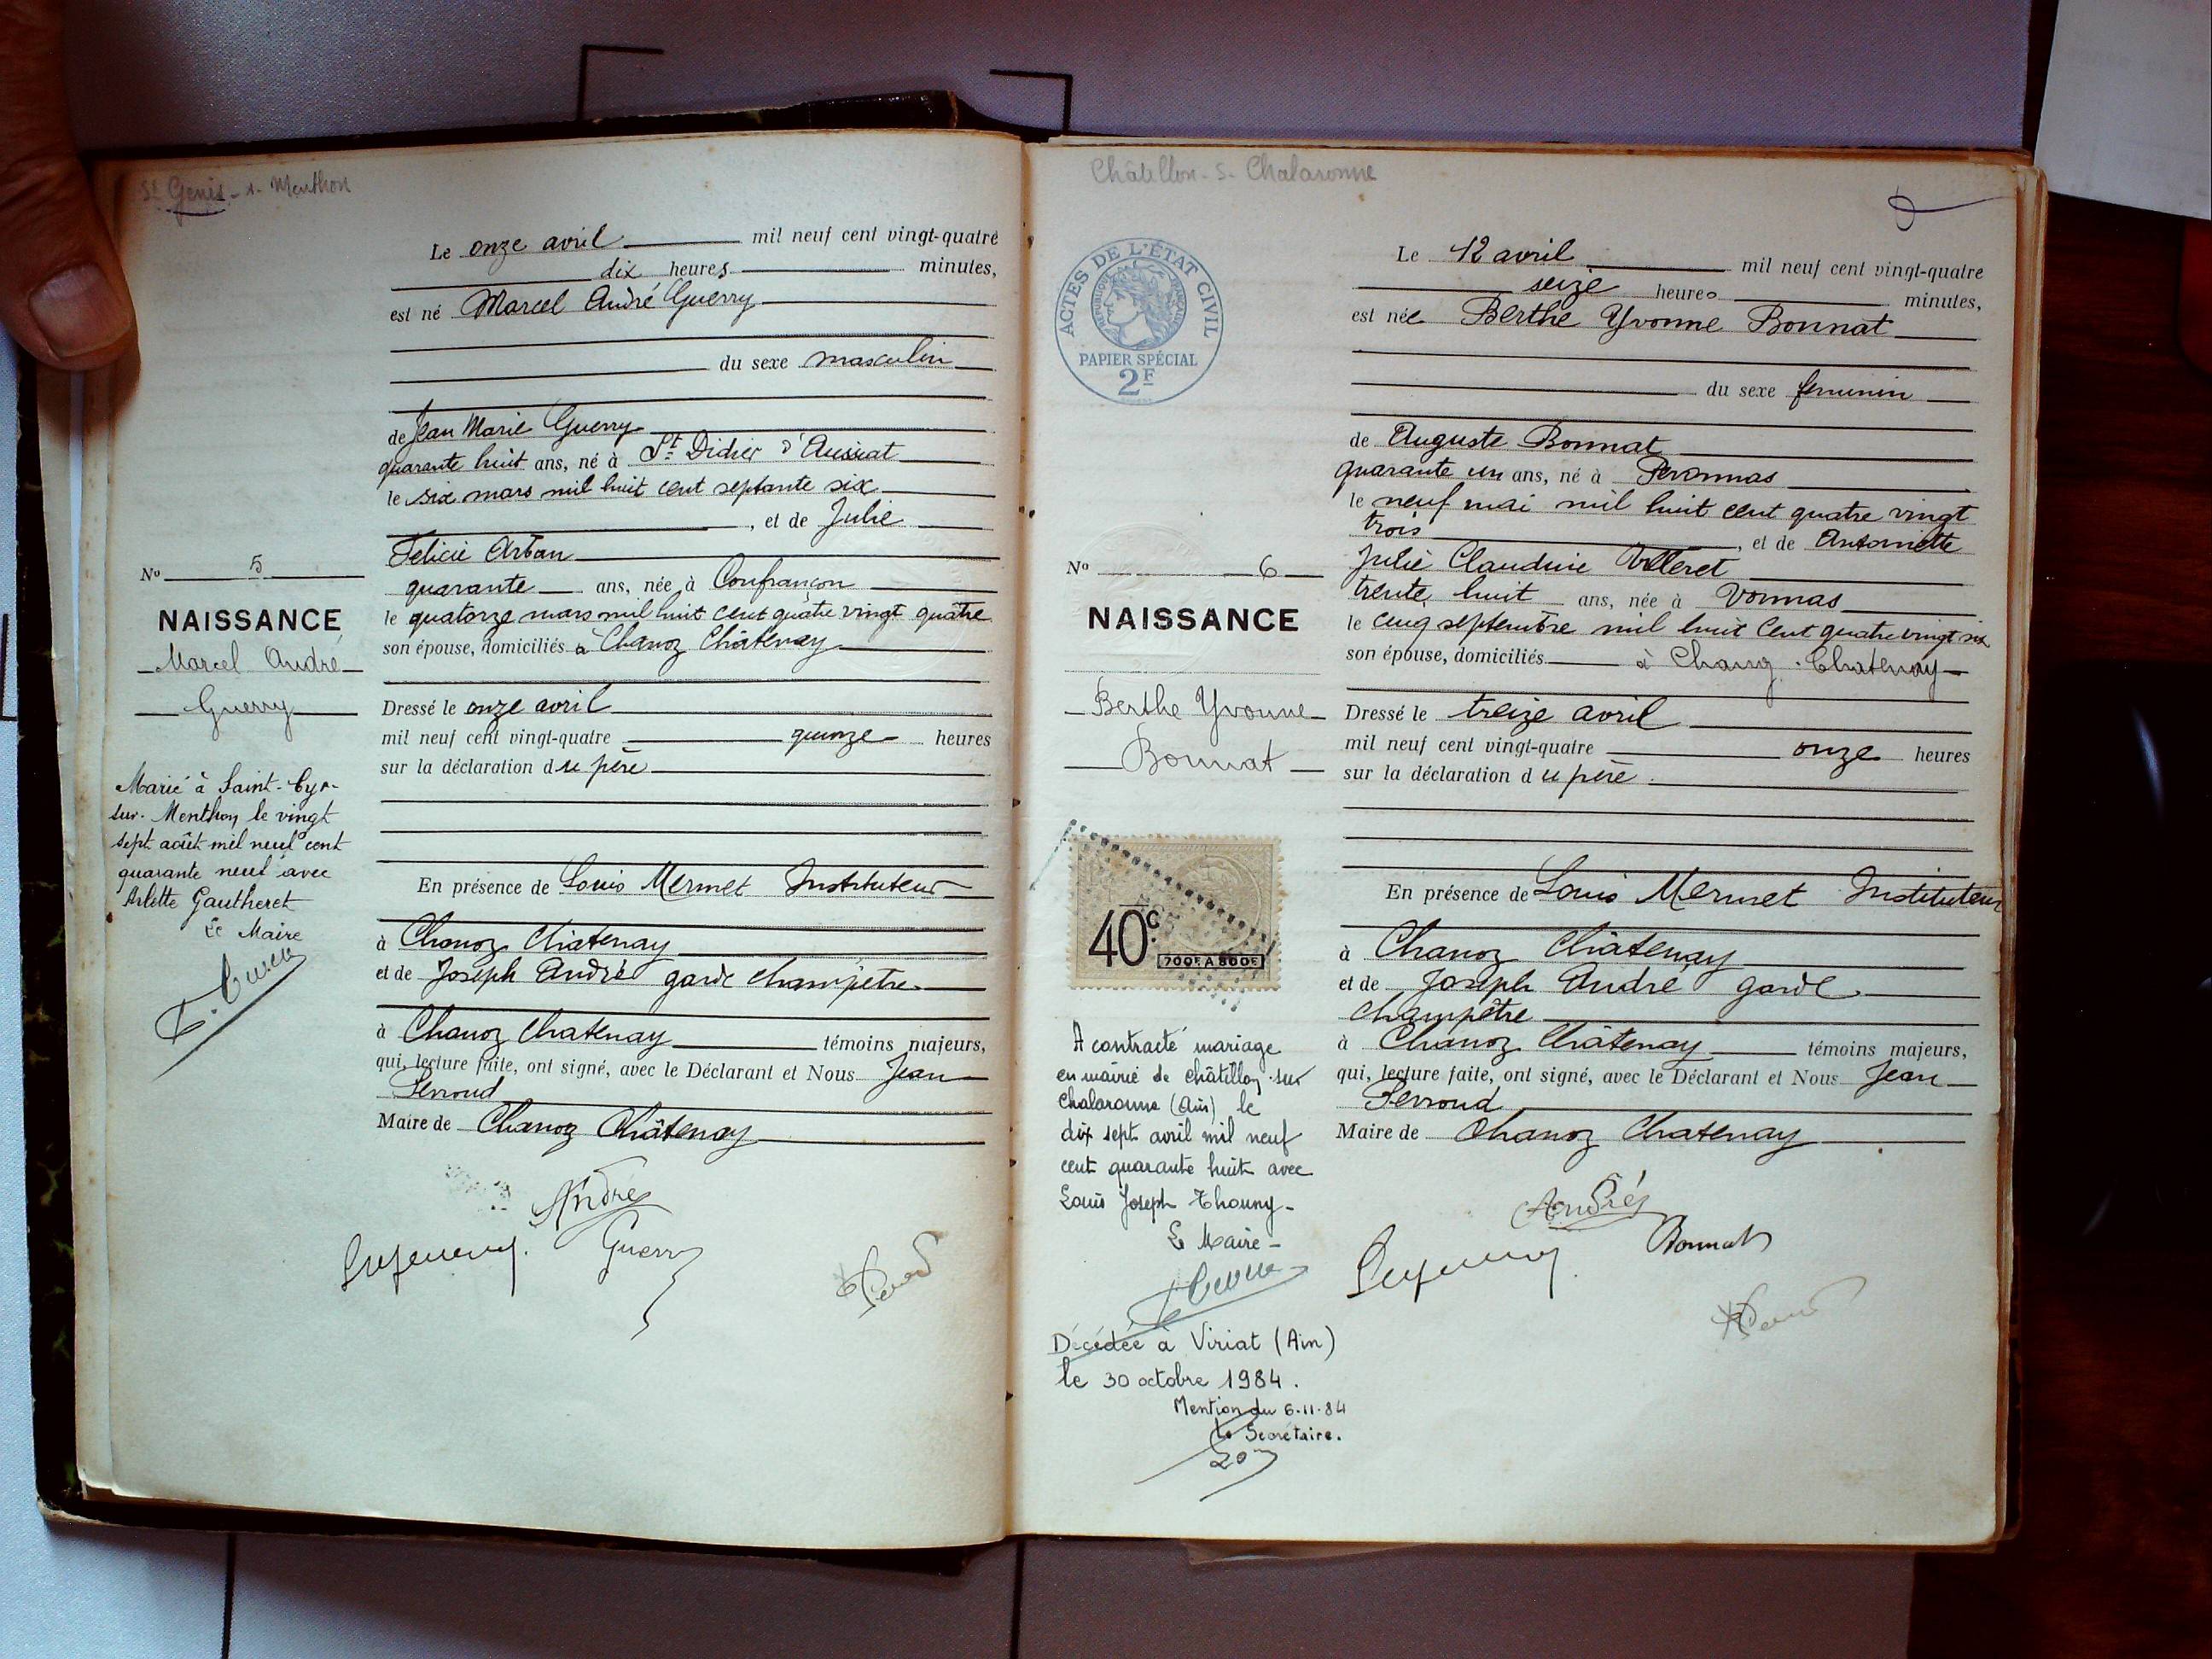 St Genis-s-Menthon
Le onze avril mil neuf cent vingt-quatre
dix heures minutes,
est né Marcel André Guerry
du sexe masculin
de Jean Marie Guerry
quarante huit ans, né à St Didier d'Aussiat
le six mars mil huit cent septante six
, et de Julie
Félicie Arban
quarante ans, née à Confrançon
le quatorze mars mil huit cent quatre vingt quatre
son épouse, domiciliés à Chanoz Châtenay
Dressé le onze avril
mil neuf cent vingt-quatre quinze heures
sur la déclaration du père
En présence de Louis Mermet Instituteur
à Chanoz Châtenay
et de Joseph André garde champêtre
à Chanoz Chatenay témoins majeurs,
qui, lecture faite, ont signé, avec le Déclarant et Nous Jean
Perroud
Maire de Chanoz Châtenay
André
Guerry
No 5
NAISSANCE
Marcel André
Guerry
Marié à Saint-Cyr-
sur-Menthon le vingt
sept août mil neuf cent
quarante neuf avec
Arlette Gautheret
Le Maire
Châtillon-s-Chalaronne
ACTES DE L'ÉTAT CIVIL
RÉPUBLIQUE FRANÇAISE
PAPIER SPÉCIAL
2F
Le 12 avril mil neuf cent vingt-quatre
seize heures minutes,
est née Berthe Yvonne Bonnat
du sexe feminin
de Auguste Bonnat
quarante un ans, né à Peronnas
le neuf mai mil huit cent quatre vingt
trois , et de Antoinette
Julie Claudine
trente huit ans, née à Vonnas
le cinq septembre mil huit cent quatre vingt six
son épouse, domiciliés à Chanoz-Chatenay
Dressé le treize avril
mil neuf cent vingt-quatre onze heures
sur la déclaration du père.
En présence de Louis Mermet Instituteur
à Chanoz Châtenay
et de Joseph André garde
champêtre
à Chanoz Châtenay témoins majeurs,
qui, lecture faite, ont signé, avec le Déclarant et Nous Jean
Perroud
Maire de Chanoz Chatenay
André
Bonnat
No 6
NAISSANCE
Berthe Yvonne
Bonnat
40c.
700F A 800F
A contracté mariage
en mairie de Châtillon-sur
Chalaronne (Ain) le
dix sept avril mil neuf
cent quarante huit avec
Louis Joseph Thouny-
Le Maire-
Décédée à Viriat (Ain)
le 30 octobre 1984.
Mention du 6-11-84
Le Secrétaire.